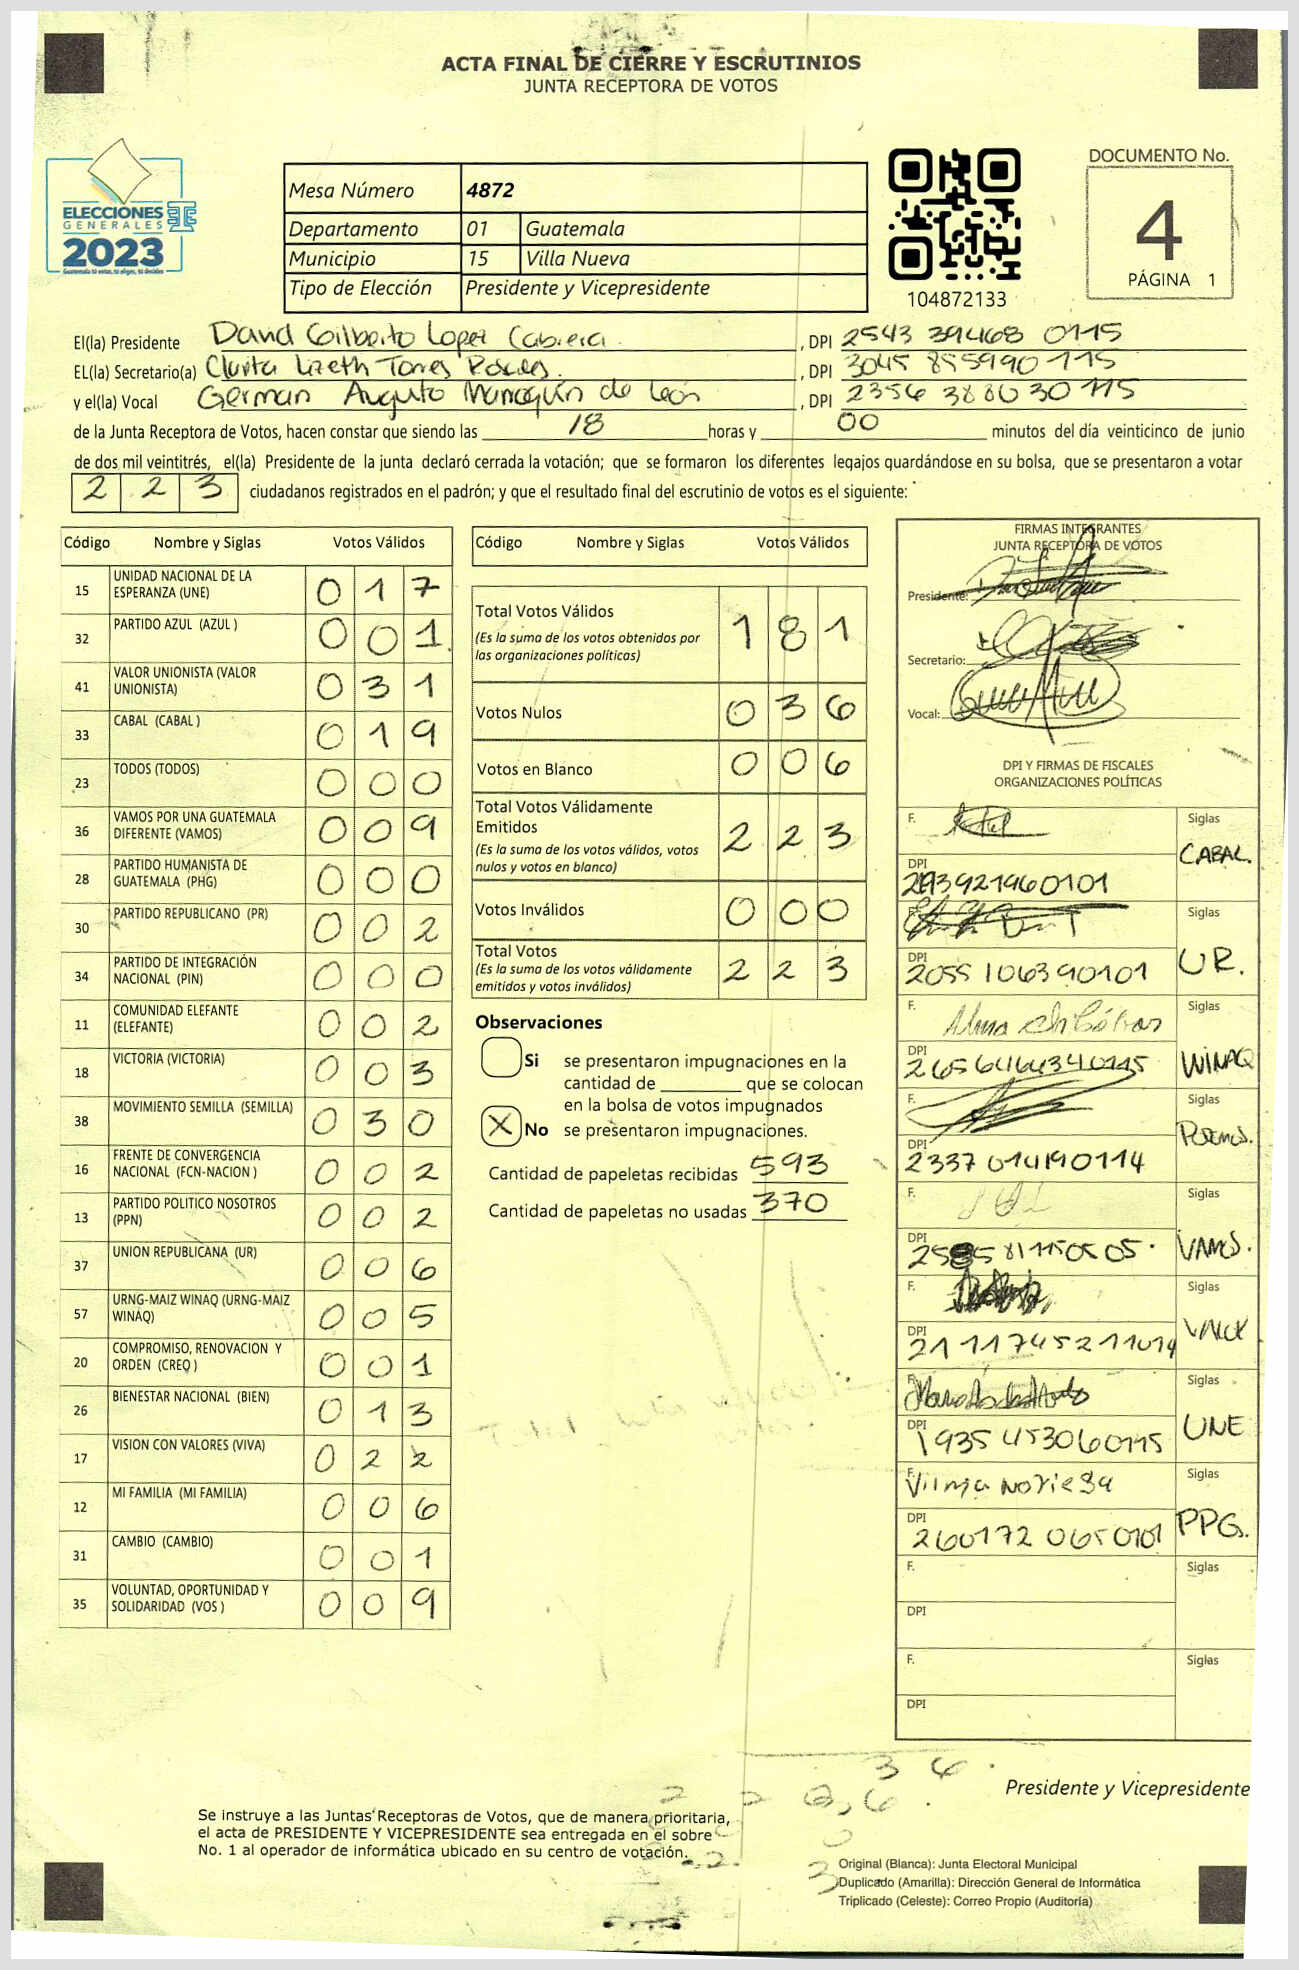 ACTA FINAL DE CIERRE Y ESCRUTINIOS
JUNTA RECEPTORA DE VOTOS
ELECCIONES
GENERALES
2023
Mesa Número 4872
Departamento 01 Guatemala
Municipio 15 Villa Nueva
Tipo de Elección Presidente y Vicepresidente
104872133
DOCUMENTO No.
4
PÁGINA 1
El(la) Presidente David Gilberto Lopez Cabrera , DPI 2543 39468 0115
EL(la) Secretario(a) Clarita Lizeth Torres , DPI 3045 85599 0115
y el(la) Vocal German Augusto Marroquín de León , DPI 2356 38803 0115
de la Junta Receptora de Votos, hacen constar que siendo las 18 horas y 00 minutos del día veinticinco de junio
de dos mil veintitrés, el(la) Presidente de la junta declaró cerrada la votación; que se formaron los diferentes legajos guardándose en su bolsa, que se presentaron a votar
223 ciudadanos registrados en el padrón; y que el resultado final del escrutinio de votos es el siguiente:
Código Nombre y Siglas Votos Válidos
15 UNIDAD NACIONAL DE LA ESPERANZA (UNE) 017
32 PARTIDO AZUL (AZUL ) 001
41 VALOR UNIONISTA (VALOR UNIONISTA) 031
33 CABAL (CABAL ) 019
23 TODOS (TODOS) 000
36 VAMOS POR UNA GUATEMALA DIFERENTE (VAMOS) 009
28 PARTIDO HUMANISTA DE GUATEMALA (PHG) 000
30 PARTIDO REPUBLICANO (PR) 002
34 PARTIDO DE INTEGRACIÓN NACIONAL (PIN) 000
11 COMUNIDAD ELEFANTE (ELEFANTE) 002
18 VICTORIA (VICTORIA) 003
38 MOVIMIENTO SEMILLA (SEMILLA) 030
16 FRENTE DE CONVERGENCIA NACIONAL (FCN-NACION ) 002
13 PARTIDO POLITICO NOSOTROS (PPN) 002
37 UNION REPUBLICANA (UR) 006
57 URNG-MAIZ WINAQ (URNG-MAIZ WINAQ) 005
20 COMPROMISO, RENOVACION Y ORDEN (CREO ) 001
26 BIENESTAR NACIONAL (BIEN) 013
17 VISION CON VALORES (VIVA) 022
12 MI FAMILIA (MI FAMILIA) 006
31 CAMBIO (CAMBIO) 001
35 VOLUNTAD, OPORTUNIDAD Y SOLIDARIDAD (VOS ) 009
Código Nombre y Siglas Votos Válidos
Total Votos Válidos 181
(Es la suma de los votos obtenidos por
las organizaciones políticas)
Votos Nulos 036
Votos en Blanco 006
Total Votos Válidamente
Emitidos 223
(Es la suma de los votos válidos, votos
nulos y votos en blanco)
Votos Inválidos 000
Total Votos 223
(Es la suma de los votos válidamente
emitidos y votos inválidos)
Observaciones
Si se presentaron impugnaciones en la
cantidad de ________ que se colocan
en la bolsa de votos impugnados
X No se presentaron impugnaciones.
Cantidad de papeletas recibidas 593
Cantidad de papeletas no usadas 370
FIRMAS INTEGRANTES
JUNTA RECEPTORA DE VOTOS
Presidente:
Secretario:
Vocal:
DPI Y FIRMAS DE FISCALES
ORGANIZACIONES POLÍTICAS
F. Siglas CABAL.
DPI
F. Siglas UR.
DPI 2055 106390101
F. Siglas WINAQ
DPI 2656464340115
F. Siglas PODEMOS.
DPI 2337 014190114
F. Siglas VAMOS.
DPI
F. Siglas
DPI 2111745211014
F. Siglas UNE
DPI 1935 453060115
F. Vilma Noriega Siglas PPG.
DPI 260172 0650101
F. Siglas
DPI
F. Siglas
DPI
Presidente y Vicepresidente
Se instruye a las Juntas Receptoras de Votos, que de manera prioritaria,
el acta de PRESIDENTE Y VICEPRESIDENTE sea entregada en el sobre
No. 1 al operador de informática ubicado en su centro de votación.
Original (Blanca): Junta Electoral Municipal
Duplicado (Amarilla): Dirección General de Informática
Triplicado (Celeste): Correo Propio (Auditoría)